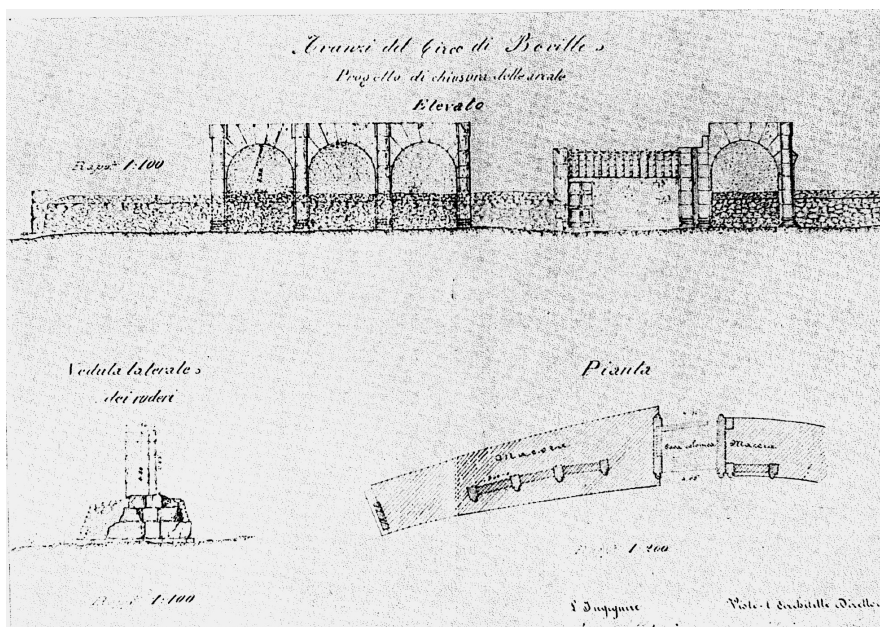 Avanzi del Circo di Boville
Progetto di chiusura delle arcate
Elevato
Rapp.º 1:100
Veduta laterale
dei ruderi
Pianta
Macera
Casa colonica
Macera
1:200
1:100
L'Ingegnere
Visto l'Architetto Diretto